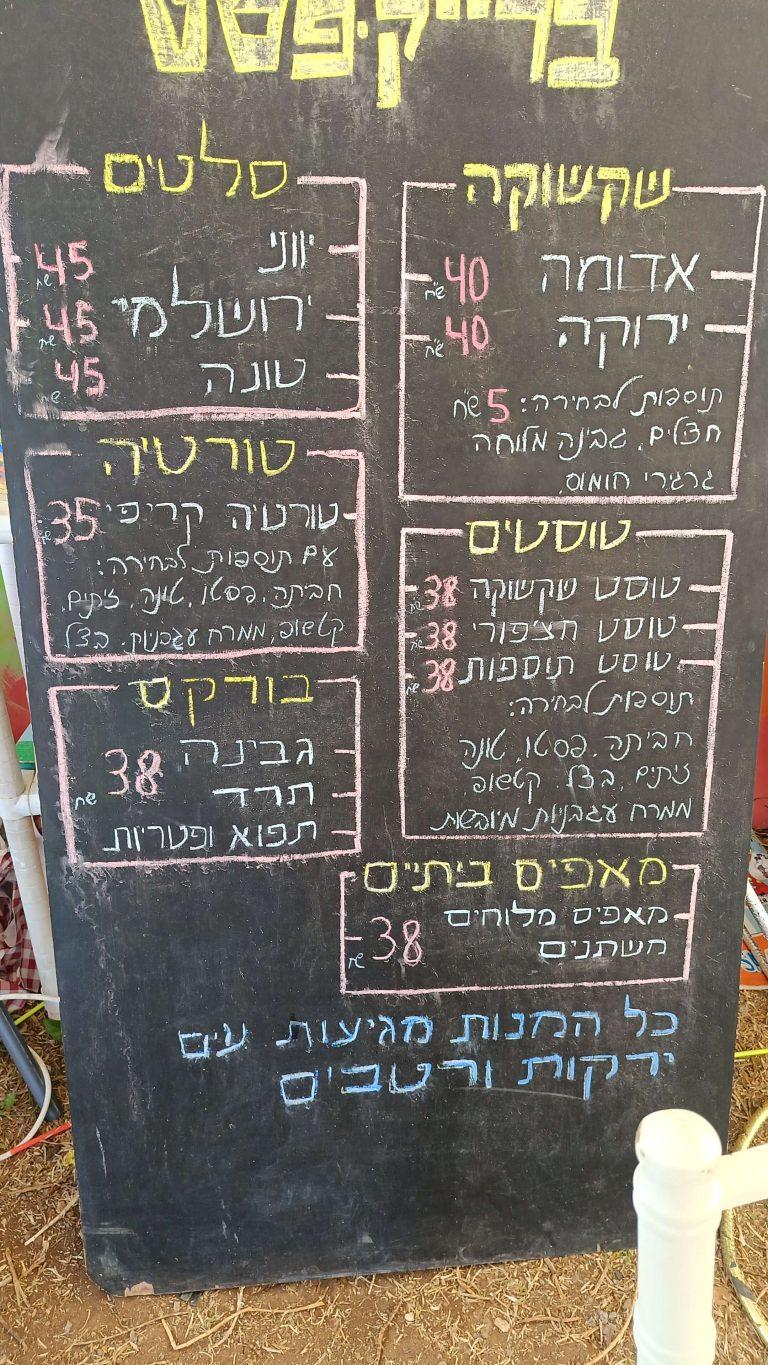 שקשוקה
אדומה 40 ש"ח
ירוקה 40 ש"ח
תוספות לבחירה: 5 ש"ח
חצלים, גבינה מלוחה
גרגירי חומוס,
סלטים
יווני 45 ש"ח
ירושלמי 45 ש"ח
טונה 45 ש"ח
טורטיה
טורטיה קריפי 35 ש"ח
עם תוספות לבחירה:
חביתה, פסטו, טונה, זיתים,
קטשופ, ממרח עגבניות, בצל
טוסטים
טוסט שקשוקה 38 ש"ח
טוסט חצ'פורי 38 ש"ח
טוסט תוספות 38 ש"ח
תוספות לבחירה:
חביתה, פסטו, טונה
זיתים, בצל, קטשופ
ממרח עגבניות מיובשות
בורקס
גבינה
תרד 38 ש"ח
תפוא ופטריות
מאפים ביתיים
מאפים מלוחים
משתנים 38 ש"ח
כל המנות מגיעות עים
ירקות ורטבים